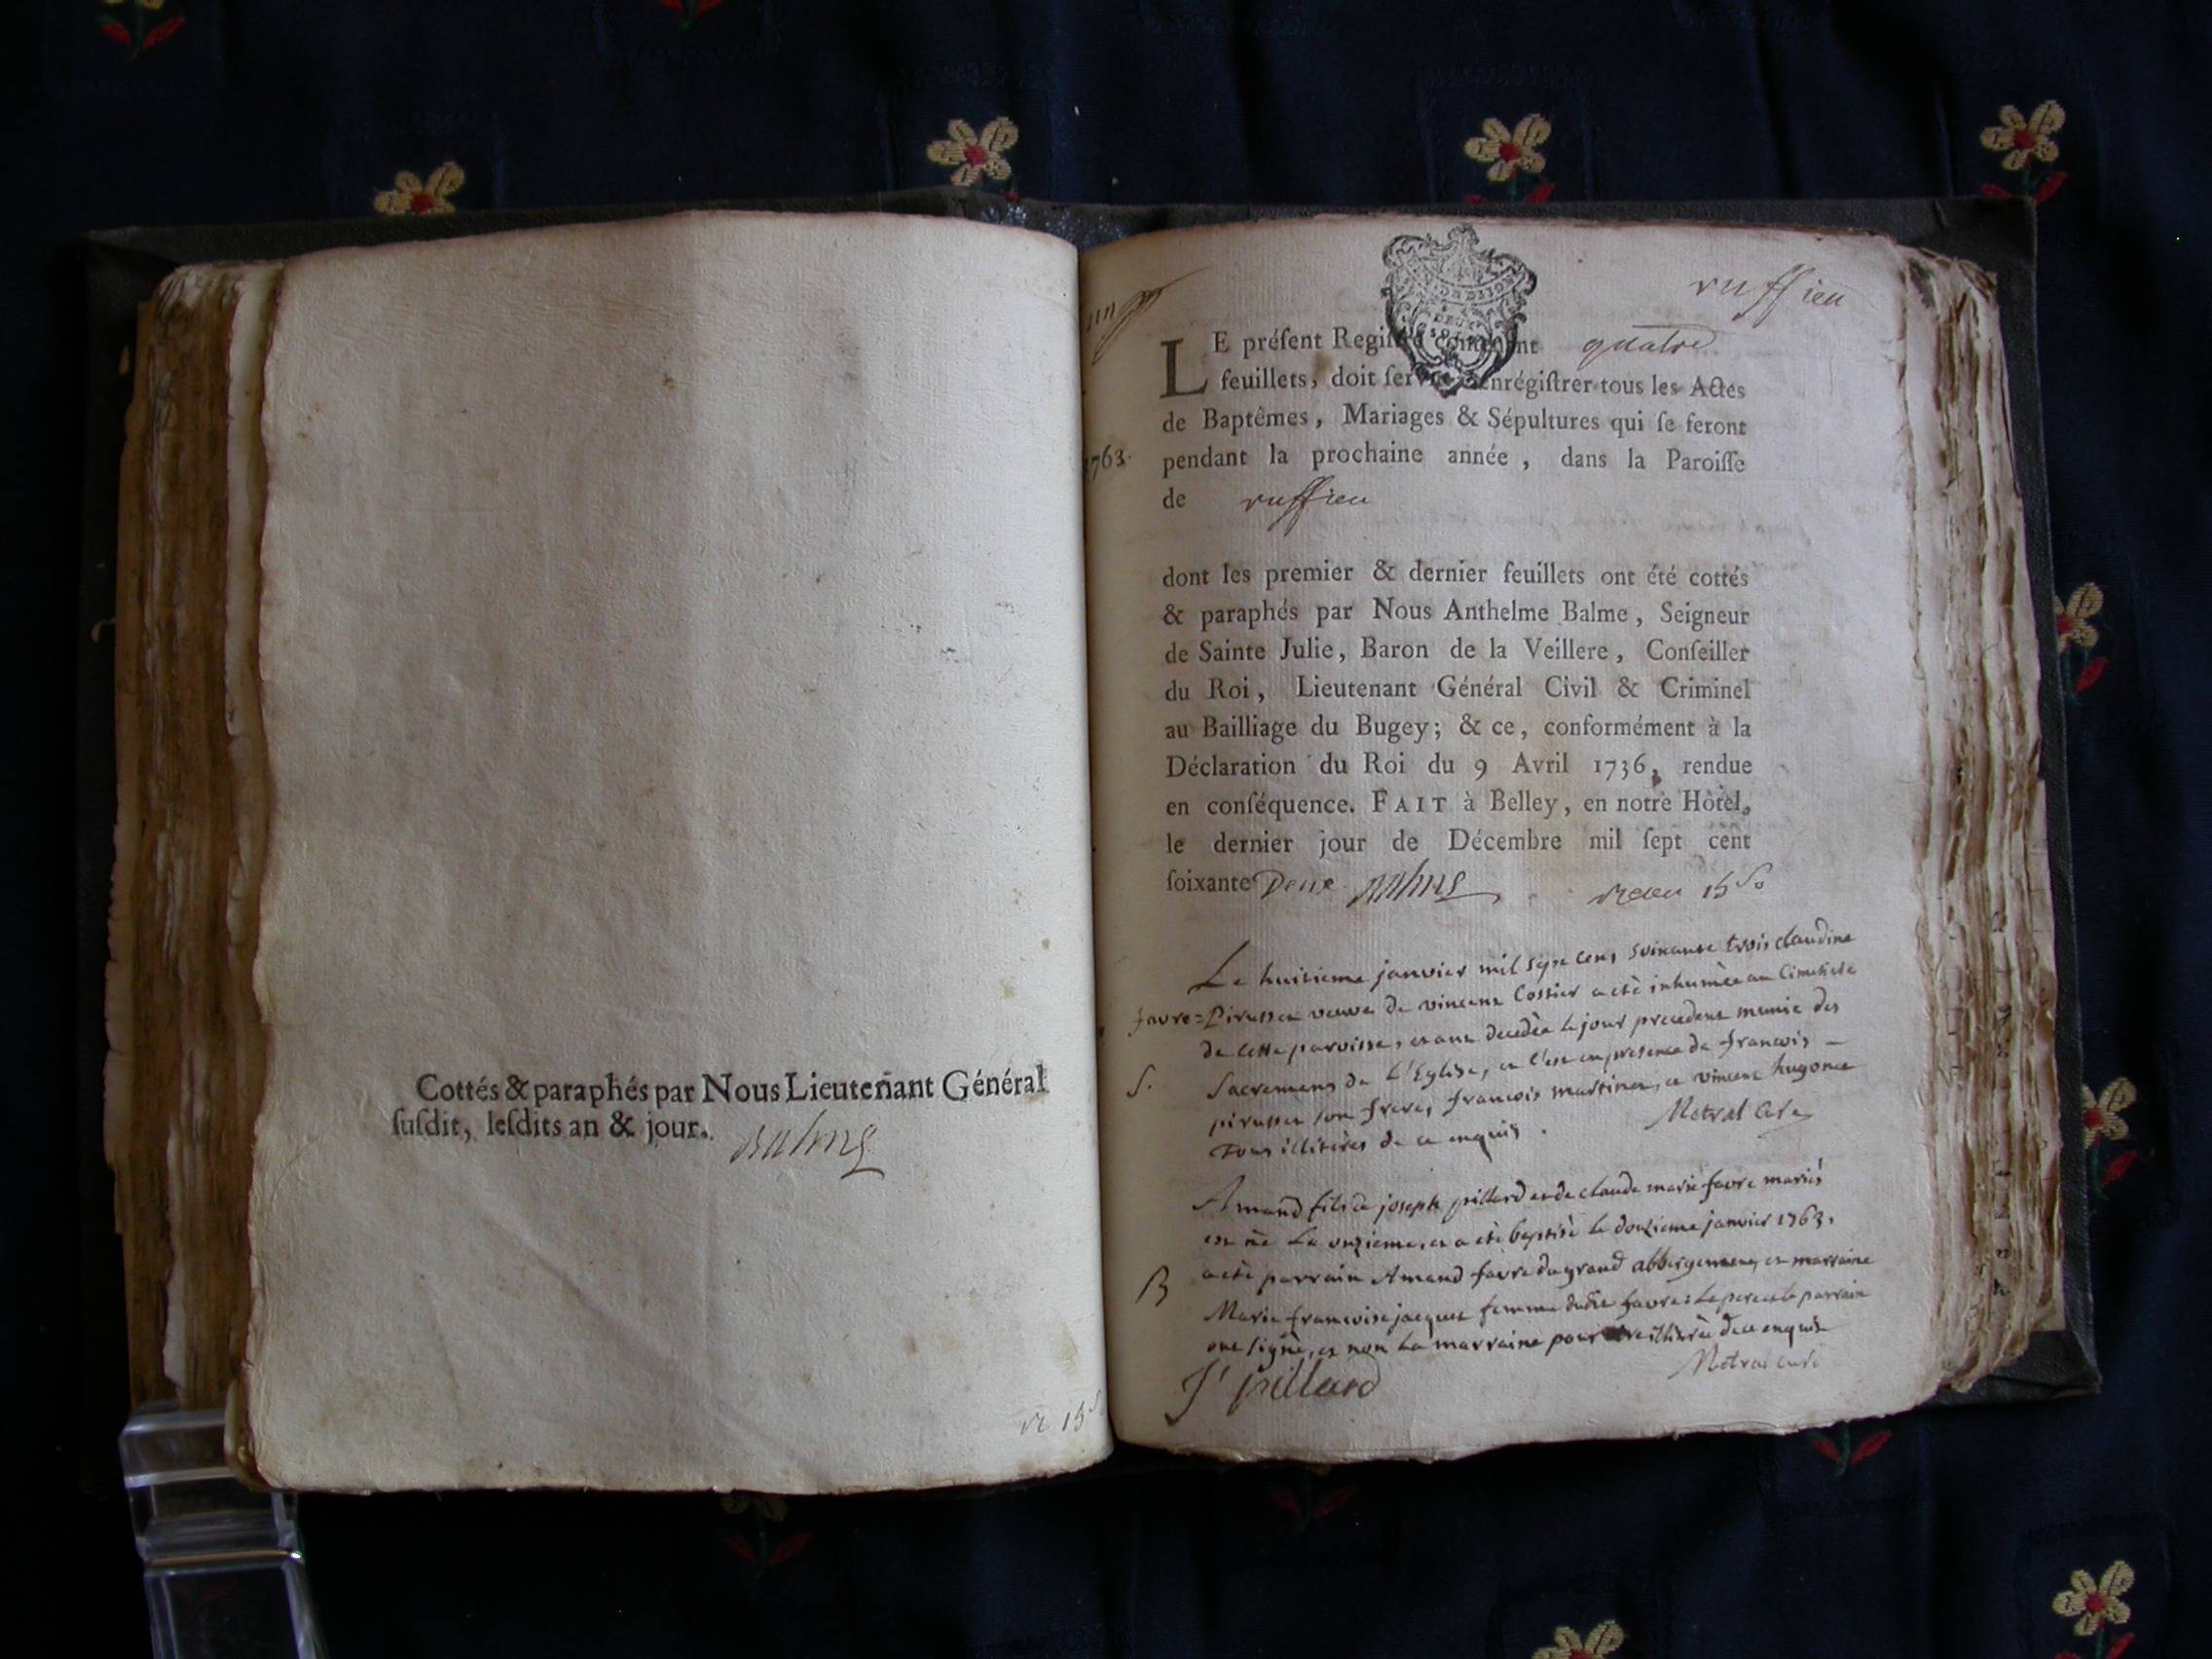 Cottés & paraphés par Nous Lieutenant Général
ſuſdit, leſdits an & jour. Balme
ruffieu
LE préſent Regiſtre contenant quatre
feuillets, doit ſervir enrégiſtrer tous les Actes
de Baptêmes, Mariages & Sépultures qui ſe feront
1763.
pendant la prochaine année, dans la Paroiſſe
de ruffieu
dont les premier & dernier feuillets ont été cottés
& paraphés par Nous Anthelme Balme, Seigneur
de Sainte Julie, Baron de la Veillere, Conſeiller
du Roi, Lieutenant Général Civil & Criminel
au Bailliage du Bugey; & ce, conformément à la
Déclaration du Roi du 9 Avril 1736, rendue
en conſéquence. FAIT à Belley, en notre Hôtel,
le dernier jour de Décembre mil ſept cent
ſoixante Deux Balme
Le huitieme janvier mil sept cent soixante trois claudine
favre=Pirusset veuve de vincent Cossier a eté inhumèe au Cimetiere
de cette paroisse, etant decedèe le jour precedent munie des
S. Sacremens de l'Eglise, et c'est en presence de francois
pirusset son frere, francois martinet, et vincent hugonet
Tous illiterès de ce enquis. Metral Curé
Amand fils de joseph pillard et de claude marie favre mariès
est nè Le onzieme, et a etè baptisè le douzieme janvier 1763,
a etè parrain Amand favre du grand abbergement, et marraine
B Marie francoise jacquet femme dudit favre: Le pere et le parrain
ont signè, et non La marraine pour etre illiterèe de ce enquise
Metral curè
J pillard